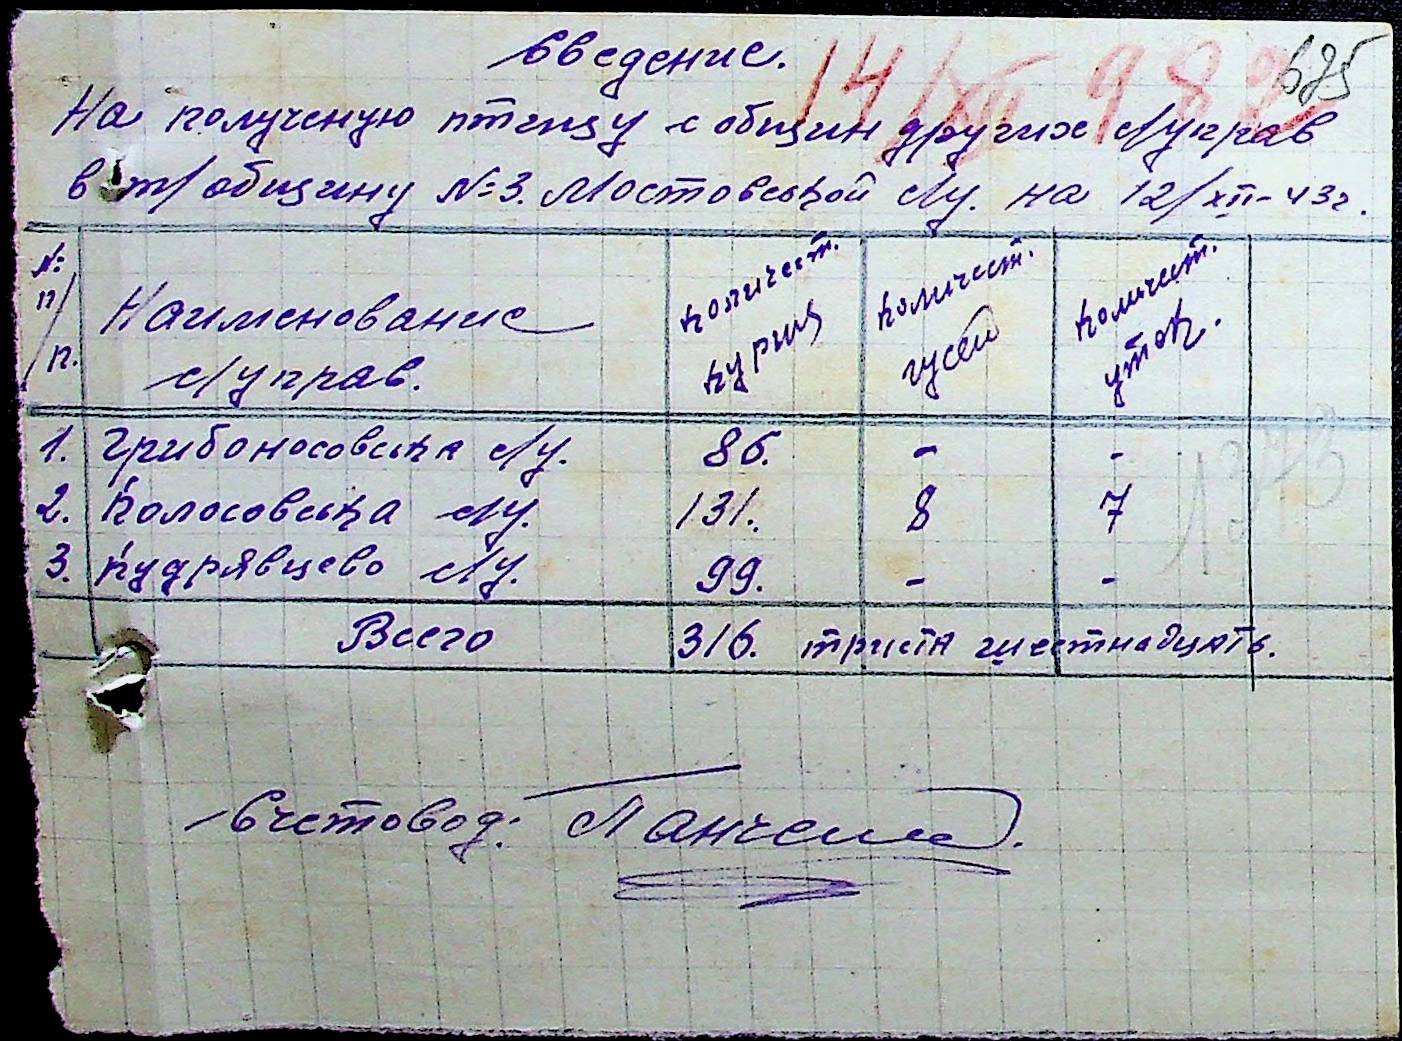 Сведение.
14/XII 982
625
На полученую птицу с общин других с/управ
в т/общину №3. Мостовской с/у. на 12/XII-43г.
№ п/п.
Наименование с/управ.
количест. куриц
количест. гусей
количест. уток.
1. Грибоносовска с/у. 86. - -
2. Колосовска с/у. 131. 8 7
3. Кудрявцево с/у. 99. - -
Всего 316. триста шестнадцать.
Счетовод: